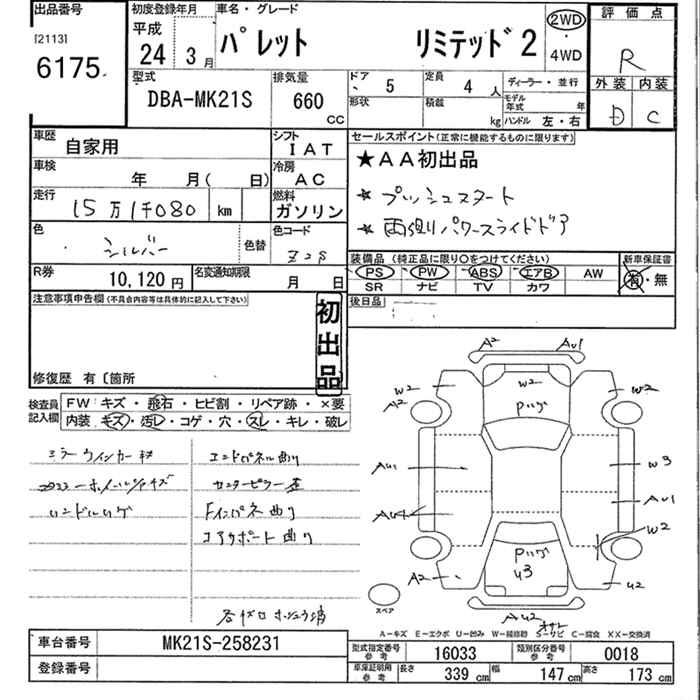 出品番号
[2113]
6175
初度登録年月
平成
24 3月
車名・グレード
パレット リミテッド2
2WD
・
4WD
評価点
R
外装 内装
D C
型式
DBA-MK21S
排気量
660
CC
ドア
5
形状
定員
4 人
積載
kg
ディーラー・並行
モデル年式 年
ハンドル 左・右
車歴
自家用
シフト
IAT
車検
年 月( 日)
冷房
AC
走行
15万1千080 km
燃料
ガソリン
色
シルバー
色替
色コード
Z2S
R券
10,120円
名変通知期限
月 日
セールスポイント(正常に機能するものに限ります)
★AA初出品
★ プッシュスタート
★ 両側パワースライドドア
装備品 (純正品に限り○をつけてください)
PS PW ABS エアB AW
SR ナビ TV カワ
新車保証書
有・無
後日品
注意事項申告欄(不具合内容等は具体的に記入して下さい)
初出品
修復歴 有〔箇所
検査員記入欄
FW:キズ・飛石・ヒビ割・リペア跡・×要
内装:キズ・汚レ・コゲ・穴・スレ・キレ・破レ
ミラーウインカー
エンドパネル曲り
ホイールキズ
センターピラー歪
ハンドルハゲ
Fインパネ曲り
コアサポート曲り
A2 AU1
W2 W2 W2
A2 Pハゲ
AU1 W3
AU4 AU1
W2
Pハゲ
U3
A2 U2
AU2
スペア
A-キズ E-エクボ U-凹み W-補修跡 S-サビ C-腐食 XX-交換済
車台番号
MK21S-258231
登録番号
型式指定番号 参考
16033
類別区分番号 参考
0018
車庫証明用 参考
長さ 339 cm 幅 147 cm 高さ 173 cm